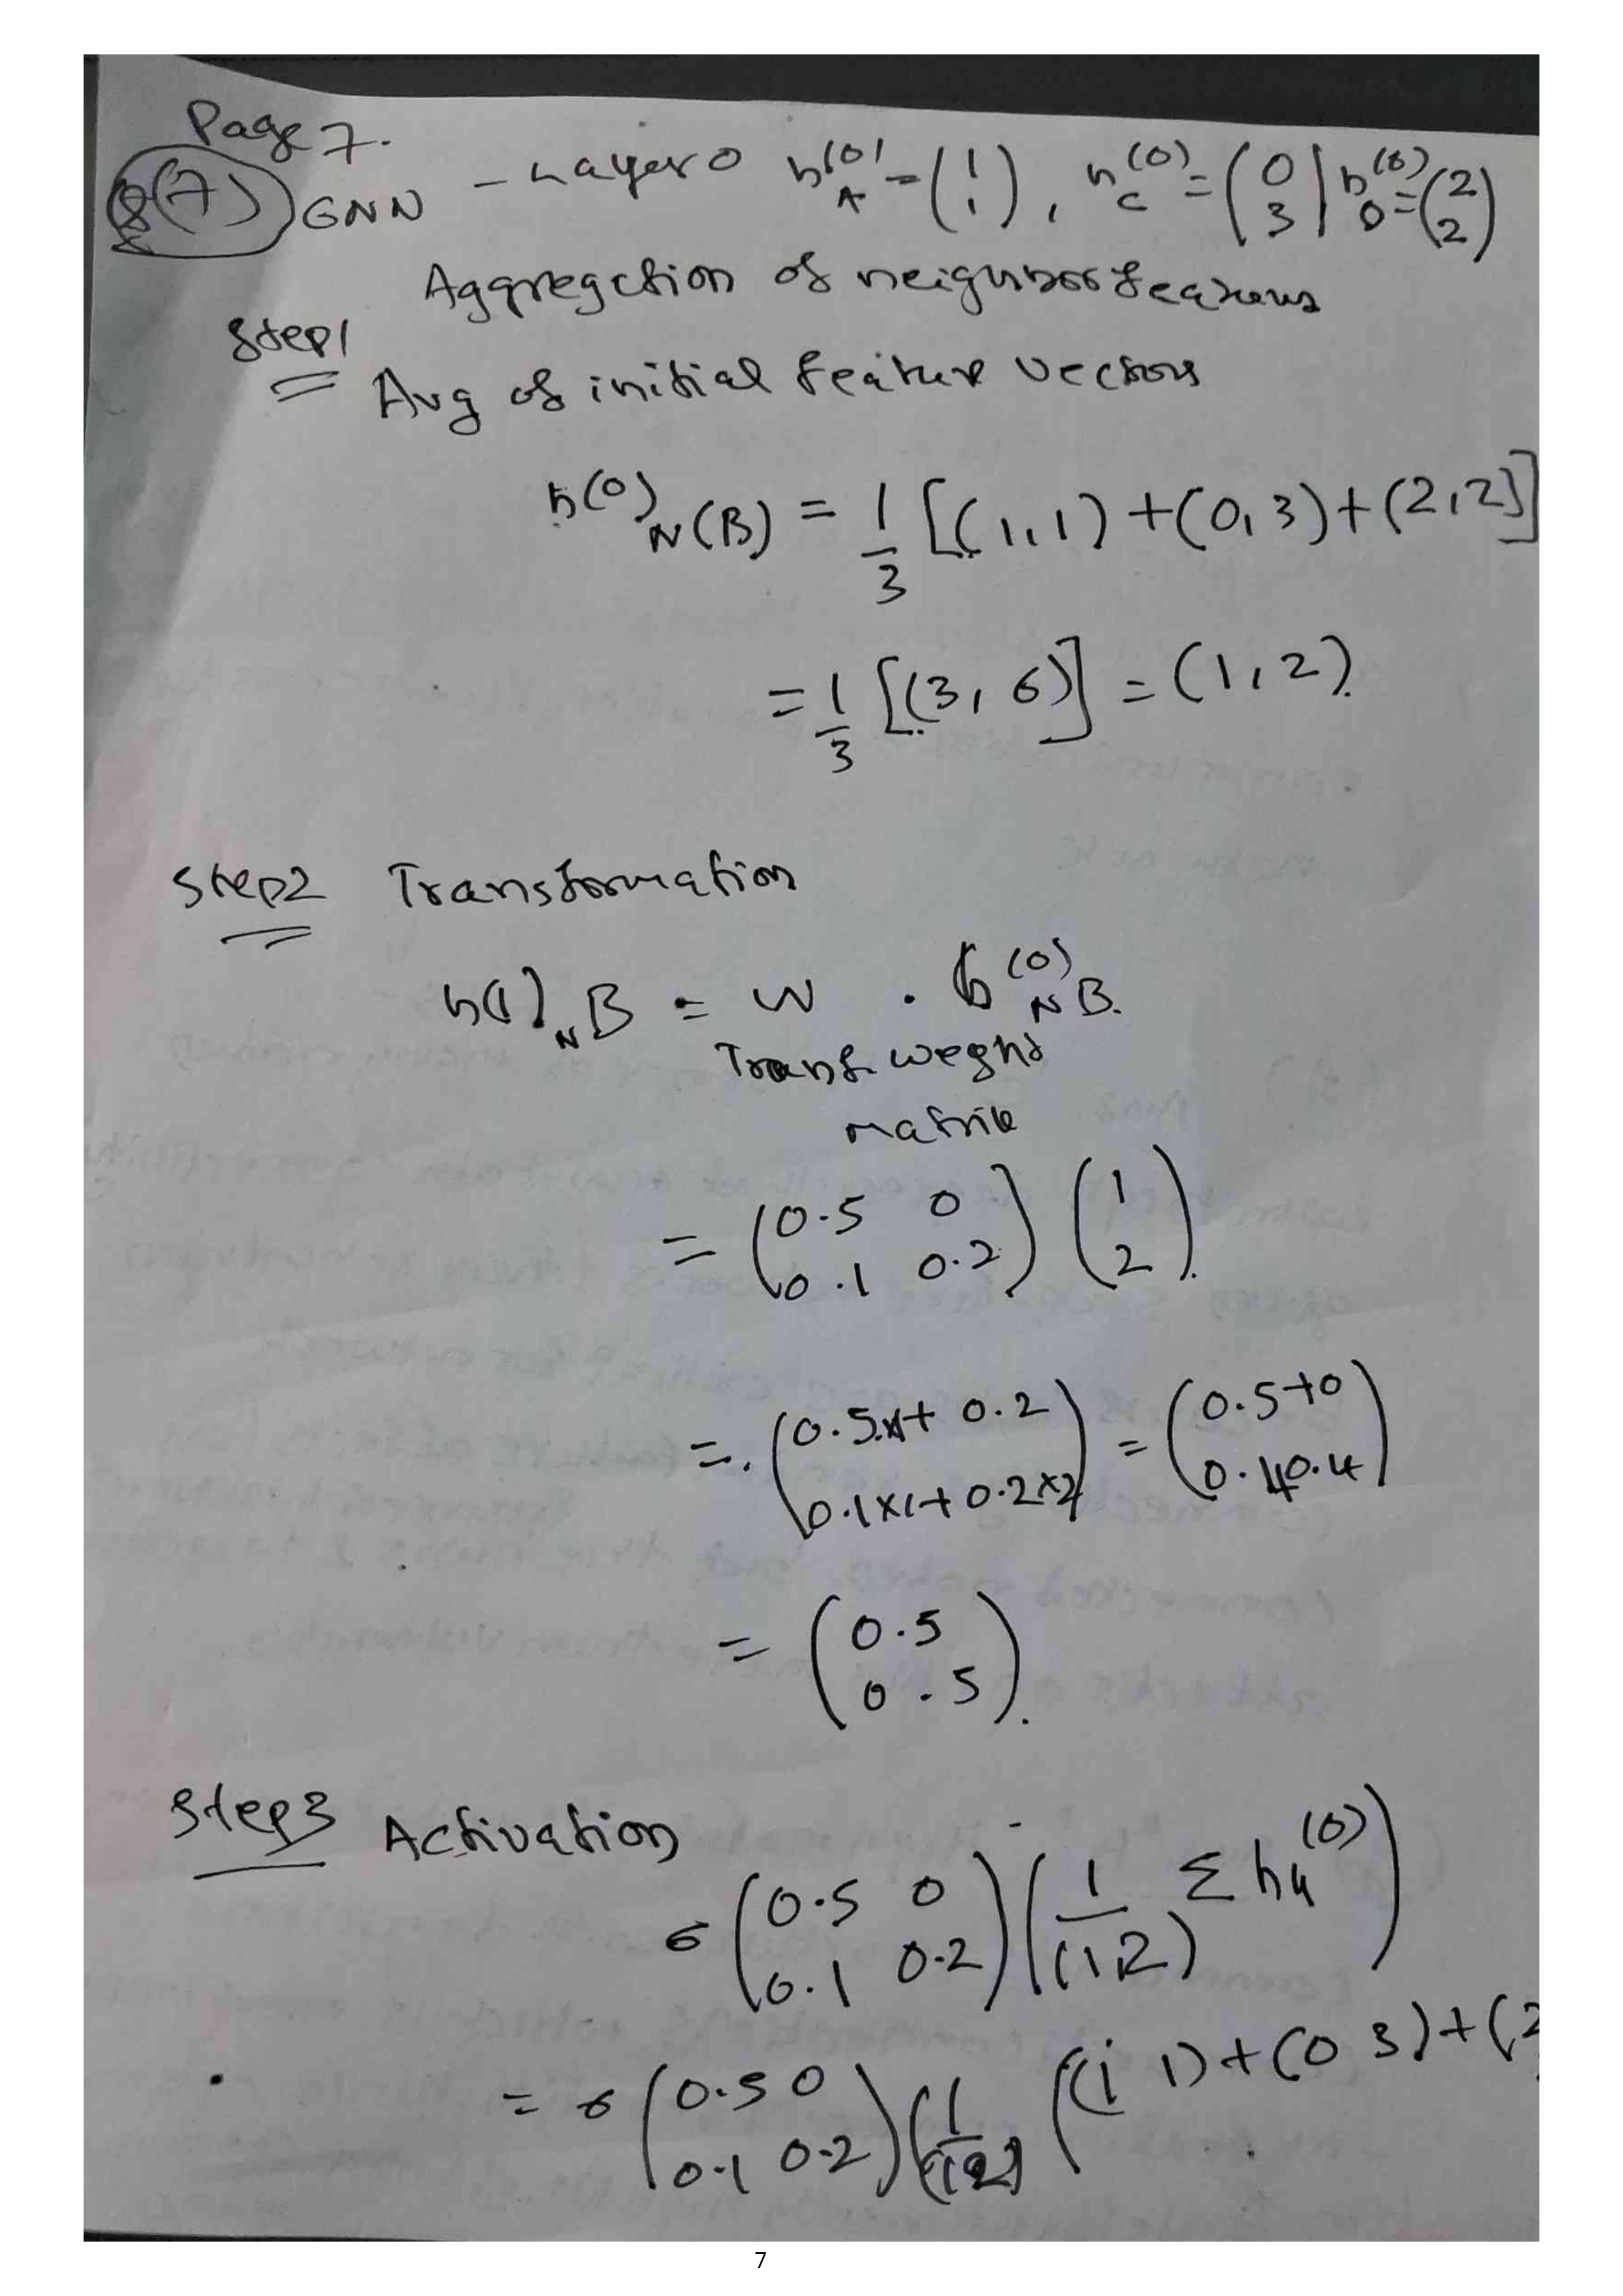 Page 7.
Q(7) GNN - Layer 0 h(0)A = (1 1), h(0)C = (0 3) h(0)D = (2 2)
Aggregation of neighbor features
Step1
Avg of initial feature vectors
h(0)N(B) = 1/3 [(1,1) + (0,3) + (2,2)]
= 1/3 [(3, 6)] = (1,2).
Step2 Transformation
h(1)N B = W . h(0)N B.
Transf. weght
matrix
= (0.5 0 0.1 0.2) (1 2).
= (0.5x1+ 0.2 0.1x1+0.2x2) = (0.5+0 0.1+0.4)
= (0.5 0.5).
Step3 Activation
σ (0.5 0 0.1 0.2) (1/(1,2) Σ hu(0))
= σ (0.5 0 0.1 0.2) (1/(1 2) ((1 1)+(0 3)+(2
7